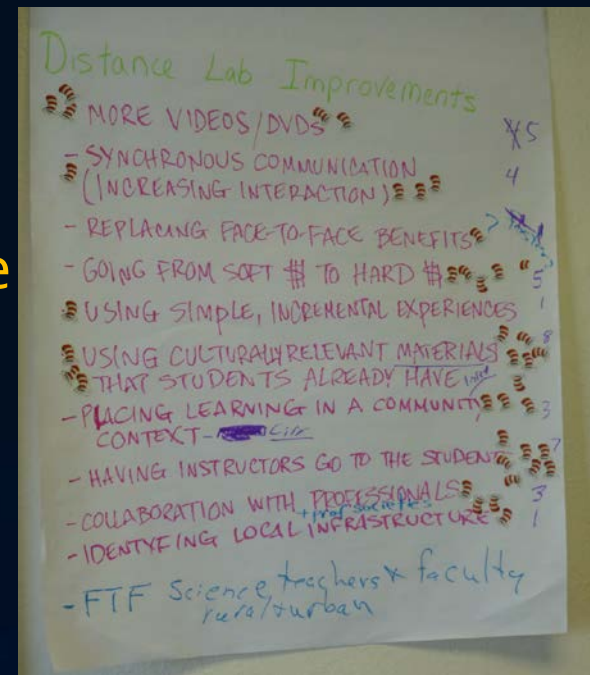 Distance Lab Improvements
MORE VIDEOS/DVDS 5
- SYNCHRONOUS COMMUNICATION 4
(INCREASING INTERACTION)
- REPLACING FACE-TO-FACE BENEFITS
- GOING FROM SOFT $ TO HARD $ 5
USING SIMPLE, INCREMENTAL EXPERIENCES 1
USING CULTURALLY RELEVANT MATERIALS 8
THAT STUDENTS ALREADY HAVE
- PLACING LEARNING IN A COMMUNITY 3
CONTEXT -
- HAVING INSTRUCTORS GO TO THE STUDENT 7
- COLLABORATION WITH PROFESSIONALS 3
+ prof societies
- IDENTYFING LOCAL INFRASTRUCTURE 1
- FTF Science teachers & faculty
rural + urban
e